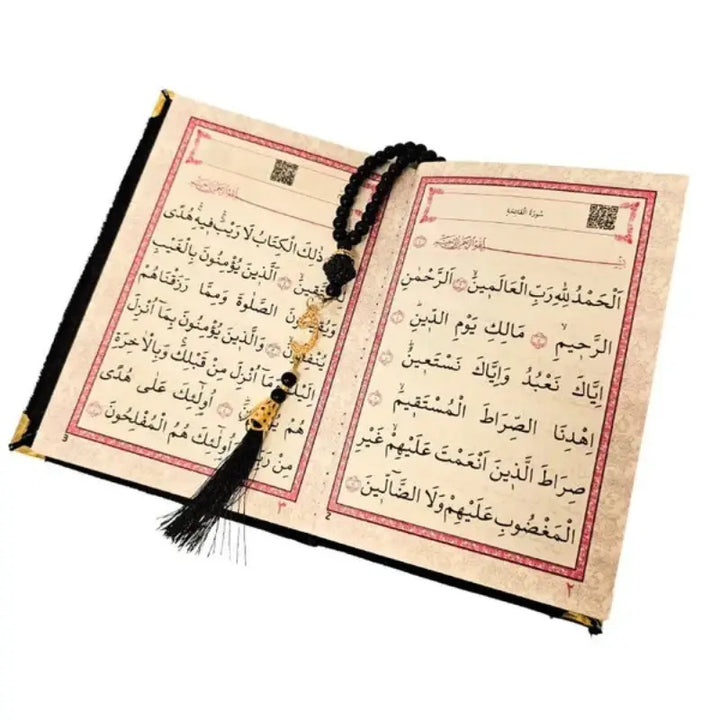 سُورَةُ الْفَاتِحَةِ
اَلْحَمْدُ لِلّٰهِ رَبِّ الْعَالَمٖينَۙ اَلرَّحْمٰنِ
الرَّحٖيمِۙ مَالِكِ يَوْمِ الدّٖينِۜ
اِيَّاكَ نَعْبُدُ وَاِيَّاكَ نَسْتَعٖينُۜ
اِهْدِنَا الصِّرَاطَ الْمُسْتَقٖيمَۙ
صِرَاطَ الَّذٖينَ اَنْعَمْتَ عَلَيْهِمْۙ غَيْرِ
الْمَغْضُوبِ عَلَيْهِمْ وَلَا الضَّٓالّٖينَ
٢
2
ذٰلِكَ الْكِتَابُ لَا رَيْبَۚ فٖيهِۚ هُدًى
اَلَّذٖينَ يُؤْمِنُونَ بِالْغَيْبِ
الصَّلٰوةَ وَمِمَّا رَزَقْنَاهُمْ
وَالَّذٖينَ يُؤْمِنُونَ بِمَٓا اُنْزِلَ
اُنْزِلَ مِنْ قَبْلِكَۚ وَبِالْاٰخِرَةِ
هُمْ اُو۬لٰٓئِكَ عَلٰى هُدًى
مِنْ وَاُو۬لٰٓئِكَ هُمُ الْمُفْلِحُونَ
٣
3